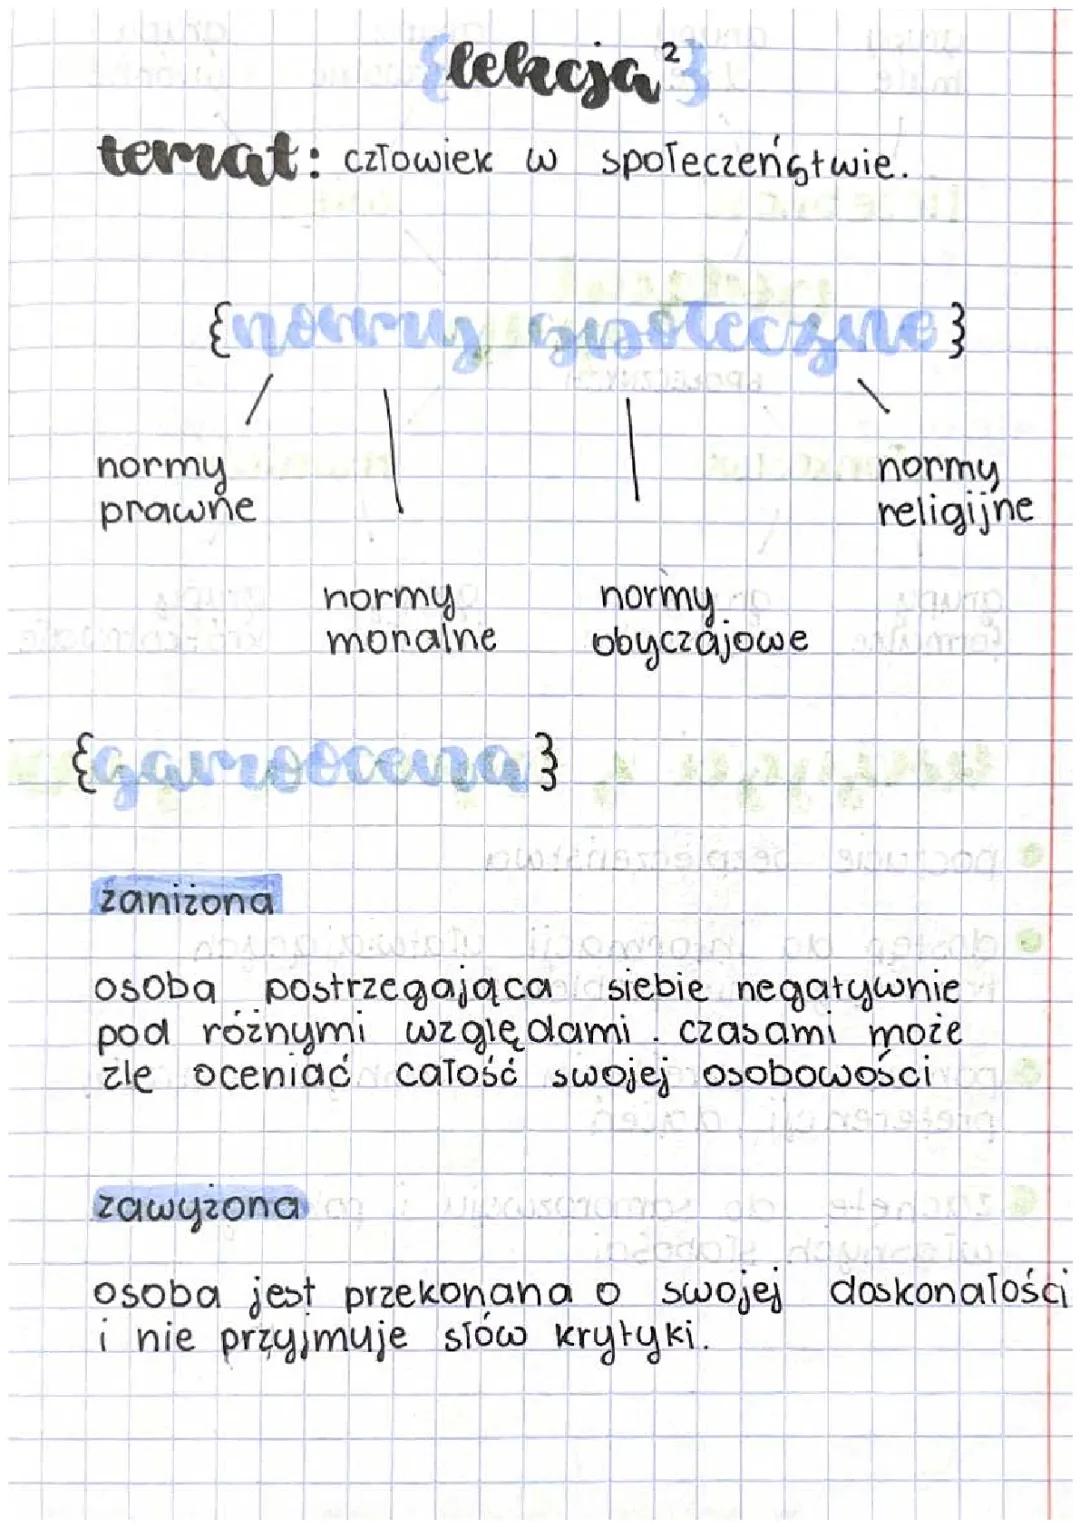 {lekcja 2}
temat: człowiek w społeczeństwie.
{normy społeczne}
normy
prawne
normy
moralne
normy
obyczajowe
normy
religijne
{samoocena}
zaniżona
osoba postrzegająca siebie negatywnie
pod różnymi względami. czasami może
źle oceniać całość swojej osobowości
zawyżona
osoba jest przekonana o swojej doskonałości
i nie przyjmuje słów krytyki.